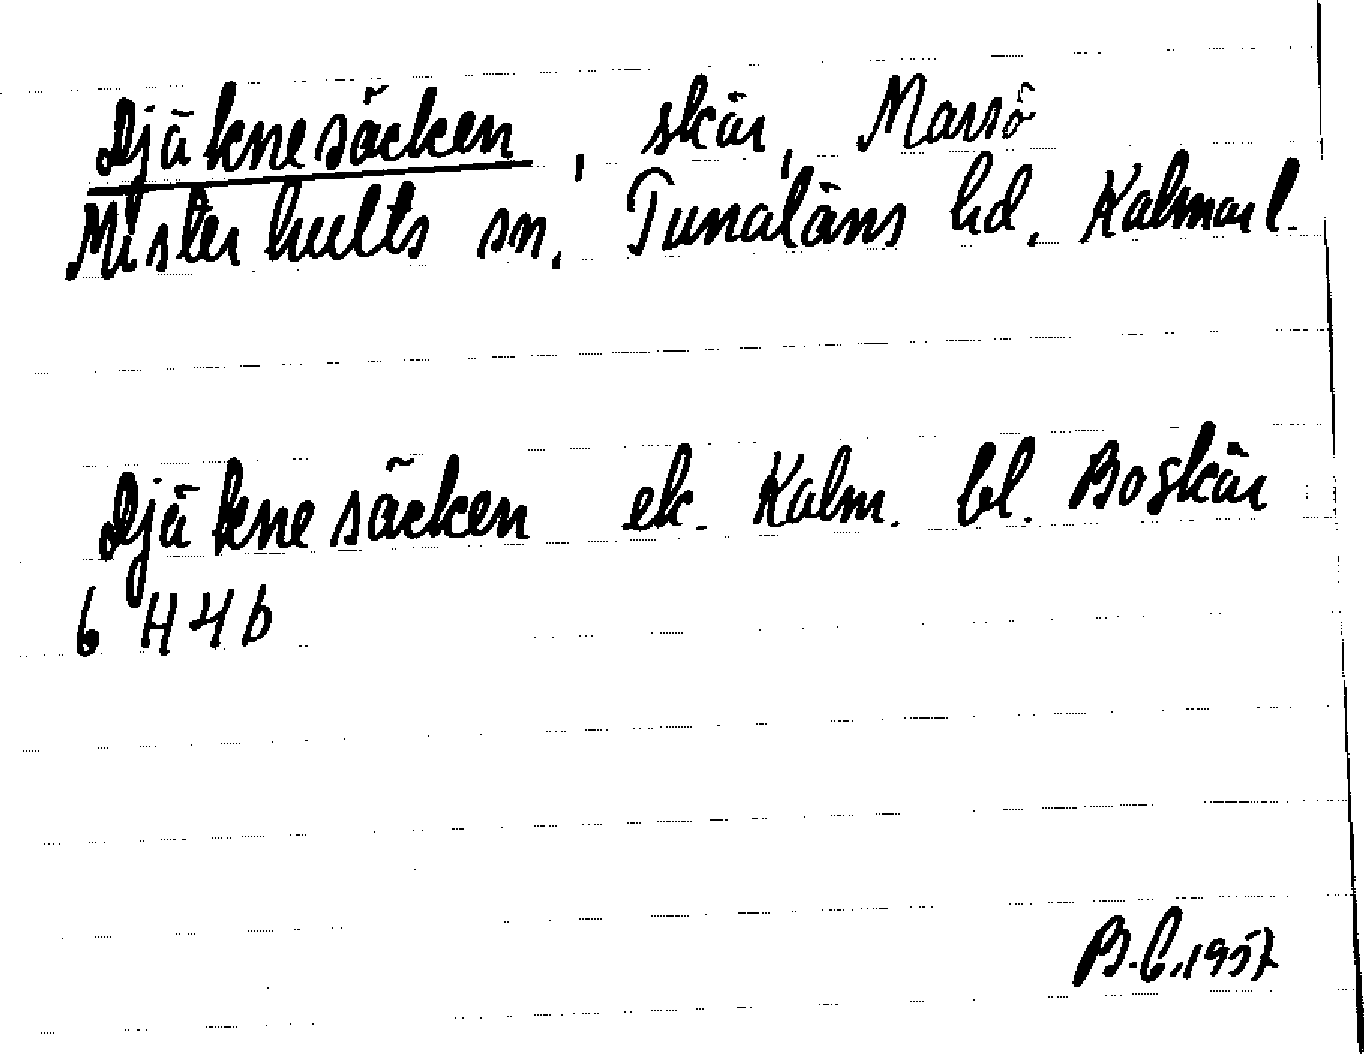 Djäknesäcken, skär, Marsö
Misterhults sn. Tunaläns hd. Kalmar l.
Djäknesäcken ek. Kalm. bl. Boskär
6 H 4 b
B.C. 1957